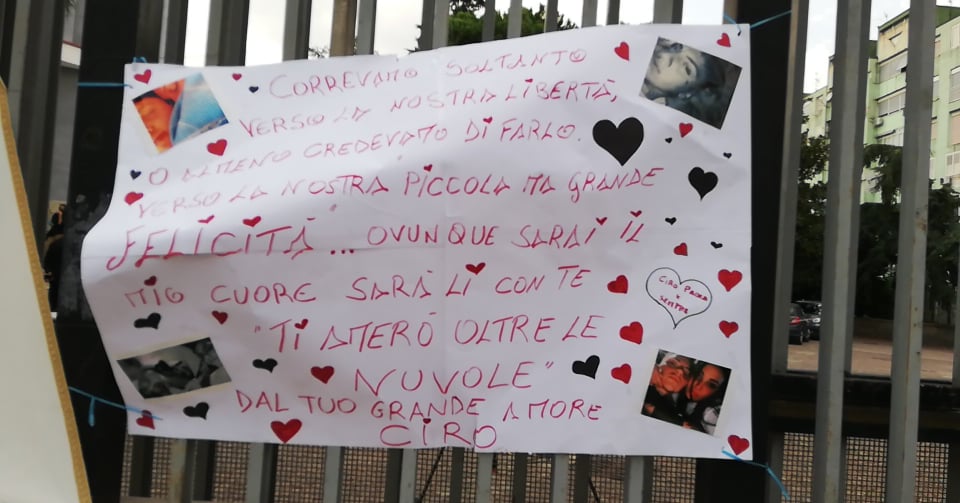 CORREVAMO SOLTANTO
VERSO LA NOSTRA LIBERTÀ,
O ALMENO CREDEVAMO DI FARLO.
VERSO LA NOSTRA PICCOLA MA GRANDE
FELICITÀ... OVUNQUE SARAI IL
MIO CUORE SARÀ LÌ CON TE
"TI AMERÒ OLTRE LE
NUVOLE"
DAL TUO GRANDE AMORE
CIRO
CIRO PAOLA
X
SEMPRE